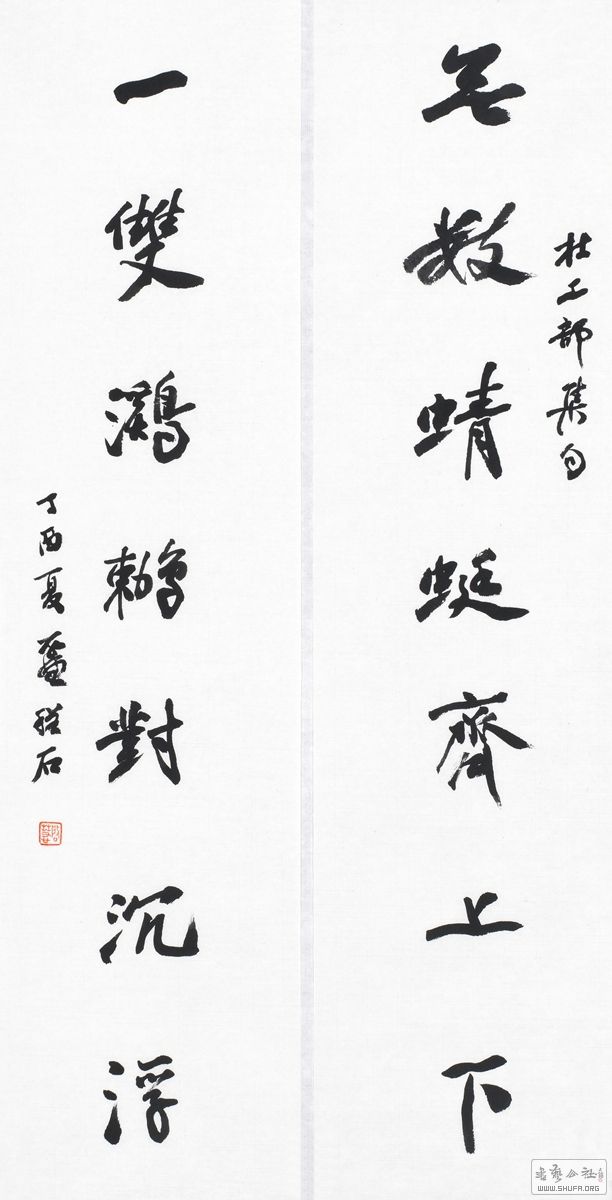 杜工部集句
无數蜻蜓齊上下
一雙鸂鶒對沉浮
丁酉夏 石
書藝公社
WWW.SHUFA.ORG